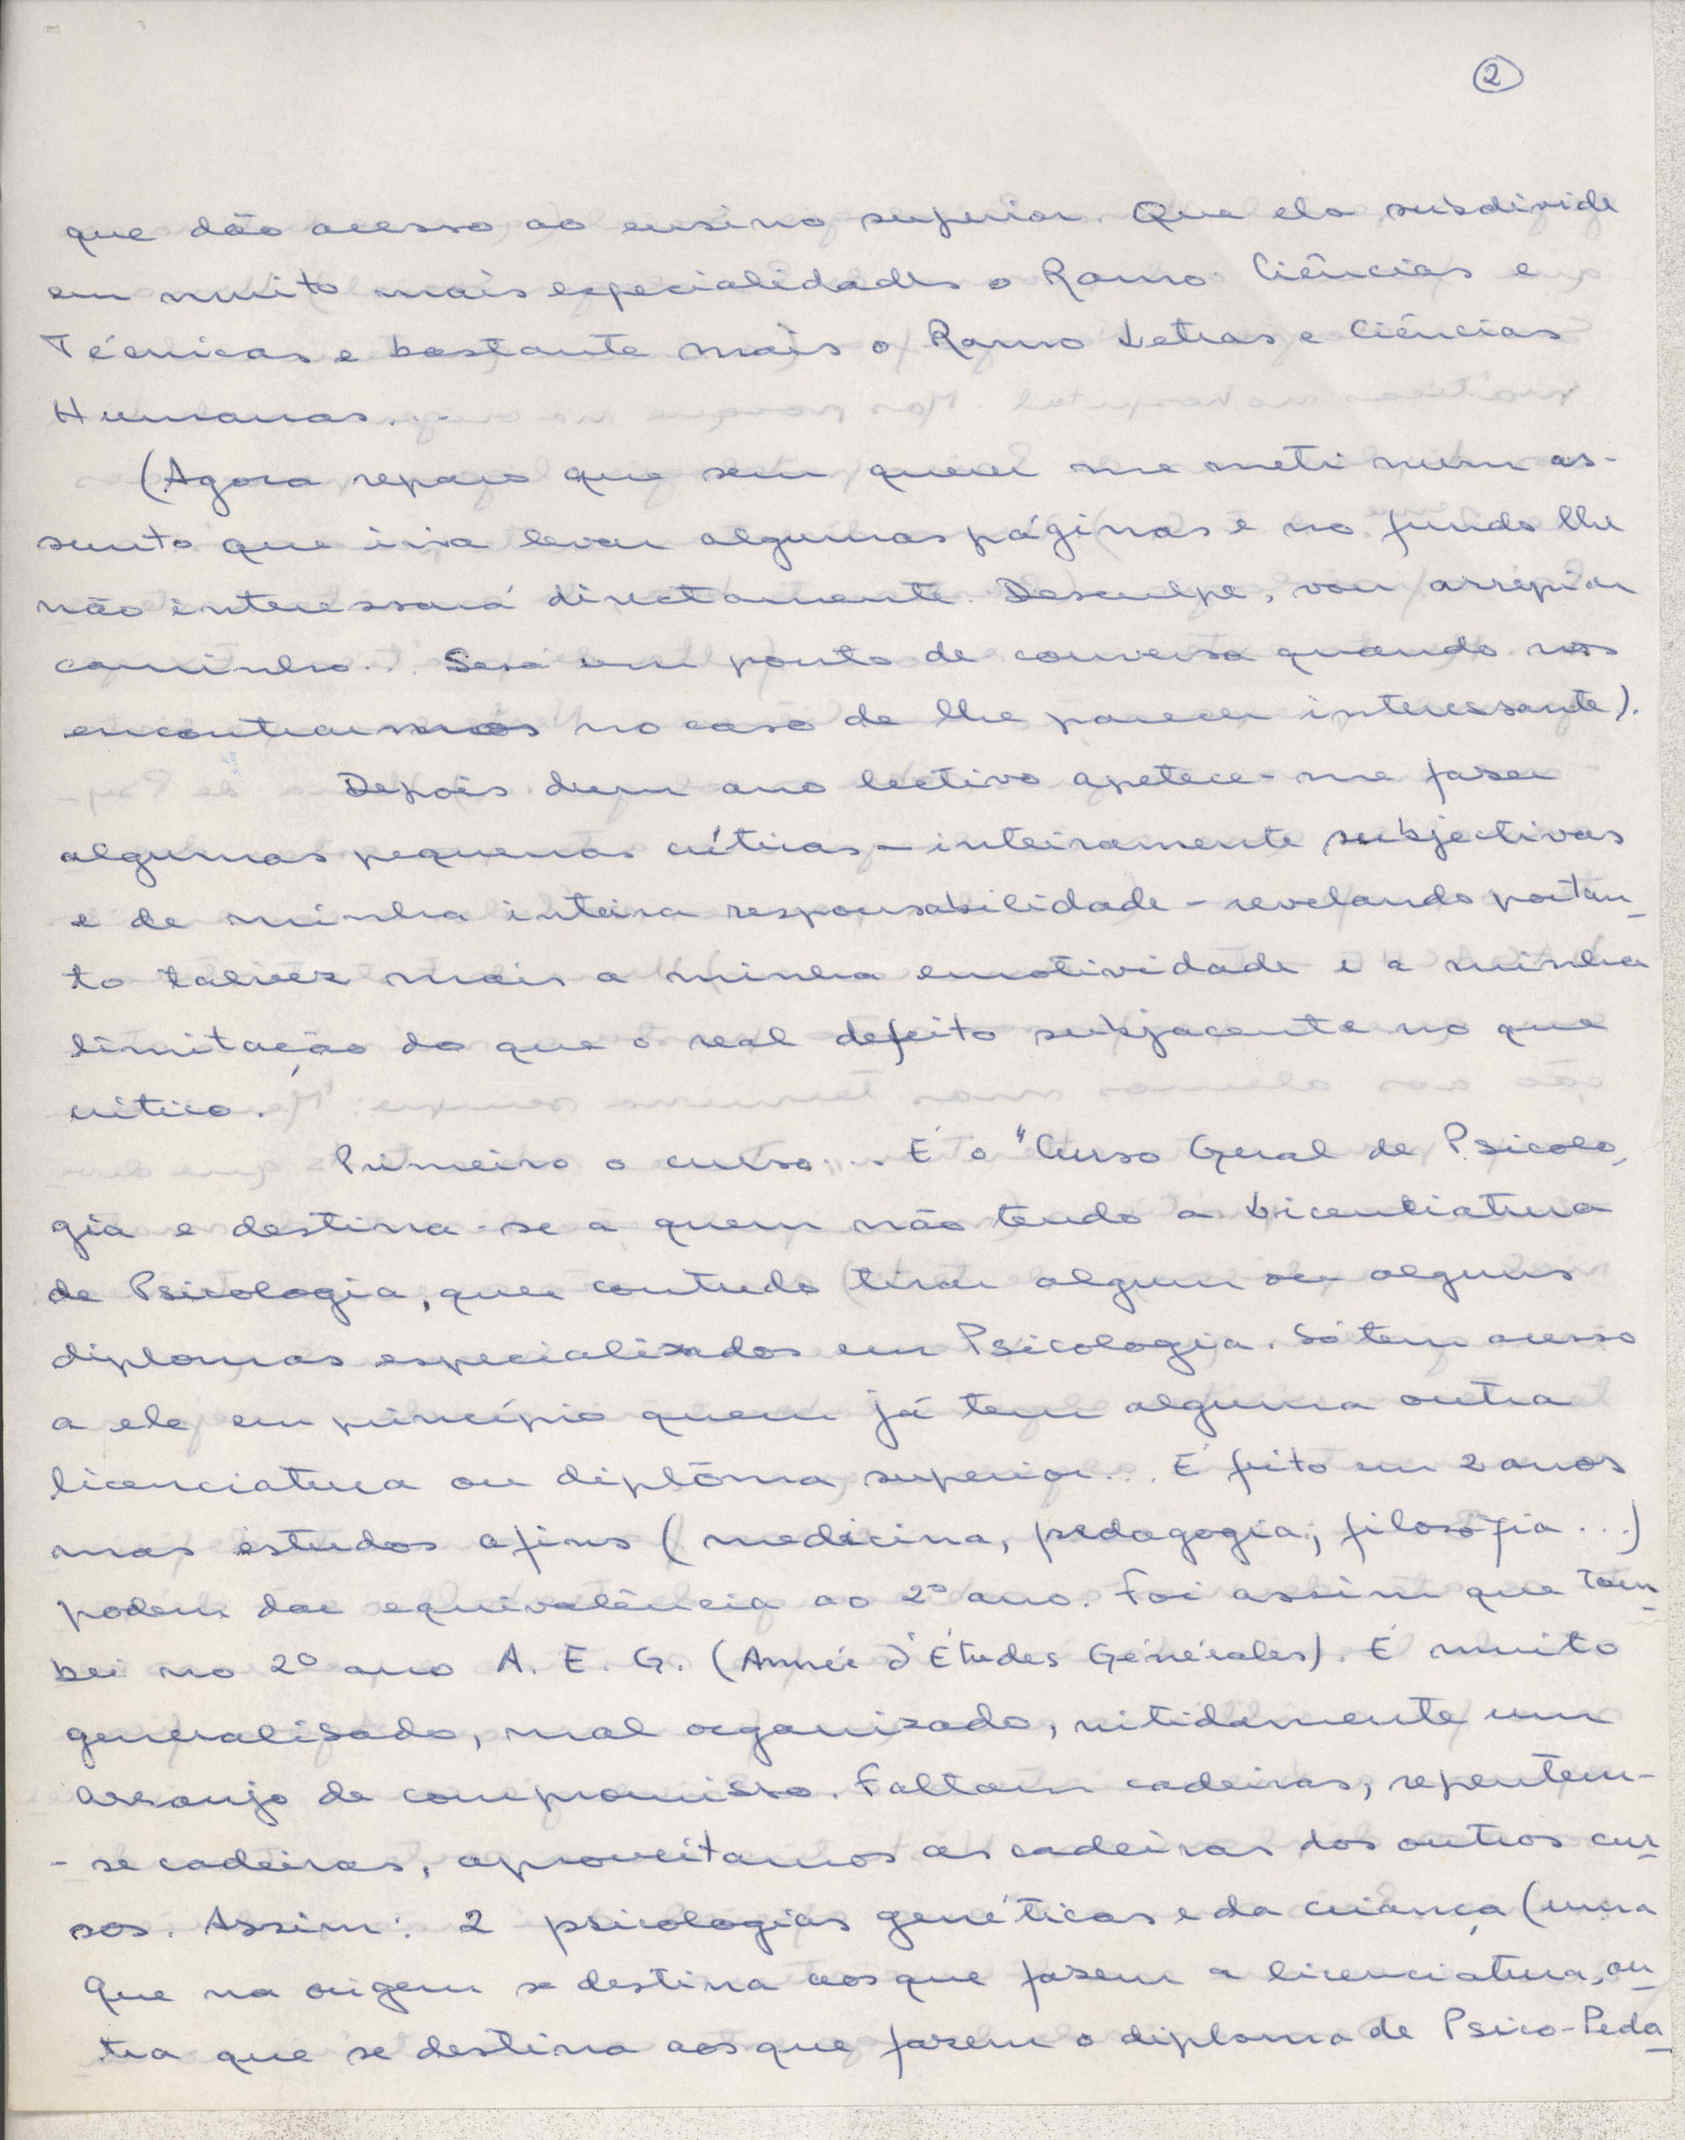 2
que dão acesso ao ensino superior. Que ela subdivide
em muito mais especialidades o Ramo Ciências e
Técnicas e bastante mais o Ramo Letras e Ciências
Humanas...
(Agora reparo que sem querer me meti num as-
sunto que iria levar algumas páginas e no fundo lhe
não interessará directamente. Desculpe, vou arrepiar
caminho... Será um ponto de conversa quando nos
encontrarmos no caso de lhe parecer interessante).
Depois dum ano lectivo apetece-me fazer
algumas pequenas críticas - inteiramente subjectivas
e de minha inteira responsabilidade - revelando portan-
to talvez mais a minha emotividade e a minha
limitação do que o real defeito subjacente no que
critico.
Primeiro o curso... É o "Curso Geral de Psicolo-
gia e destina-se a quem não tendo a Licenciatura
de Psicologia, quer contudo tirar algum ou alguns
diplomas especializados em Psicologia. Só tem acesso
a ele em princípio quem já tem alguma outra
licenciatura ou diplôma superior... É feito em 2 anos
mas estudos afins (medicina, pedagogia, filosofia...)
podem dar equivalência ao 2º ano. Foi assim que tom-
bei no 2º ano A. E. G. (Année d'Études Générales). É muito
generalisado, mal organizado, nitidamente um
arranjo de compromisso. Faltam cadeiras, repentem-
-se cadeiras, aproveitamos as cadeiras dos outros cur-
sos. Assim: 2 psicologias genéticas e da criança (uma
que na origem se destina aos que fazem a licenciatura, ou-
tra que se destina aos que fazem o diploma de Psico-Peda-